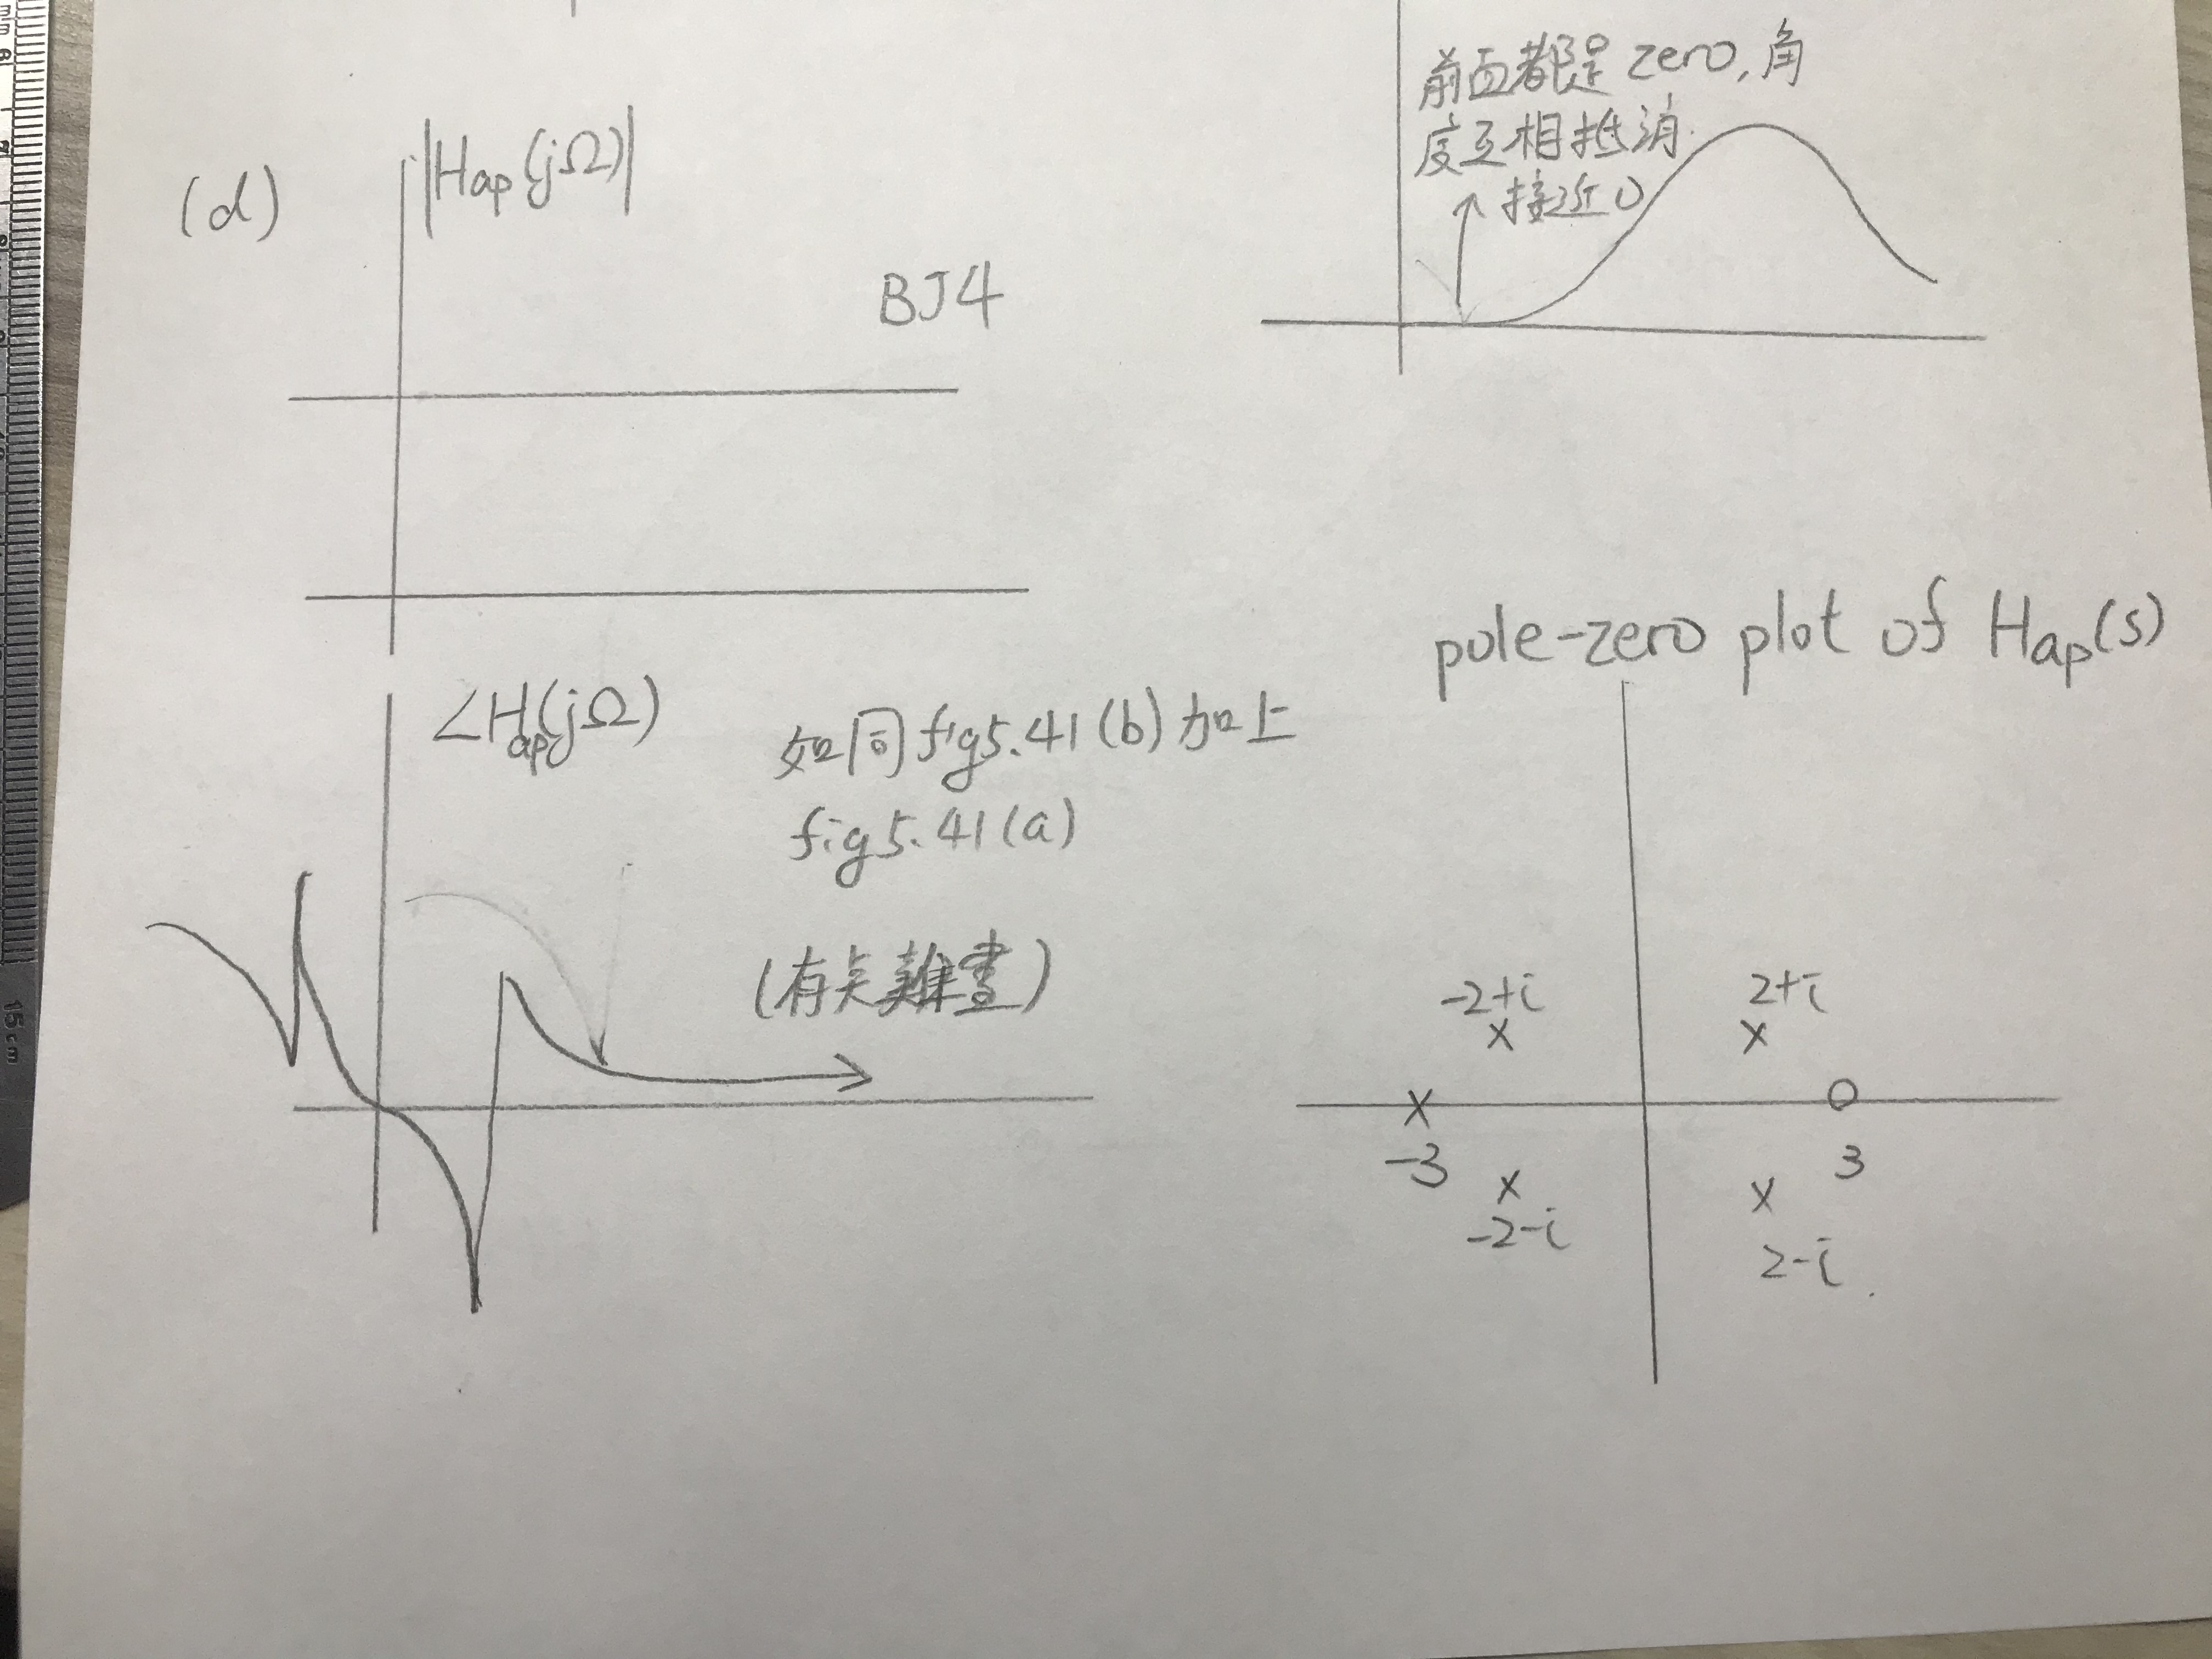 (d)
|Hap(jΩ)|
BJ4
前面都是 zero, 角
度互相抵消
接近0
∠Hap(jΩ)
如同fig5.41(b)加上
fig5.41(a)
(有点難畫)
pole-zero plot of Hap(s)
-2+i
2+i
-3
3
-2-i
2-i
15cm